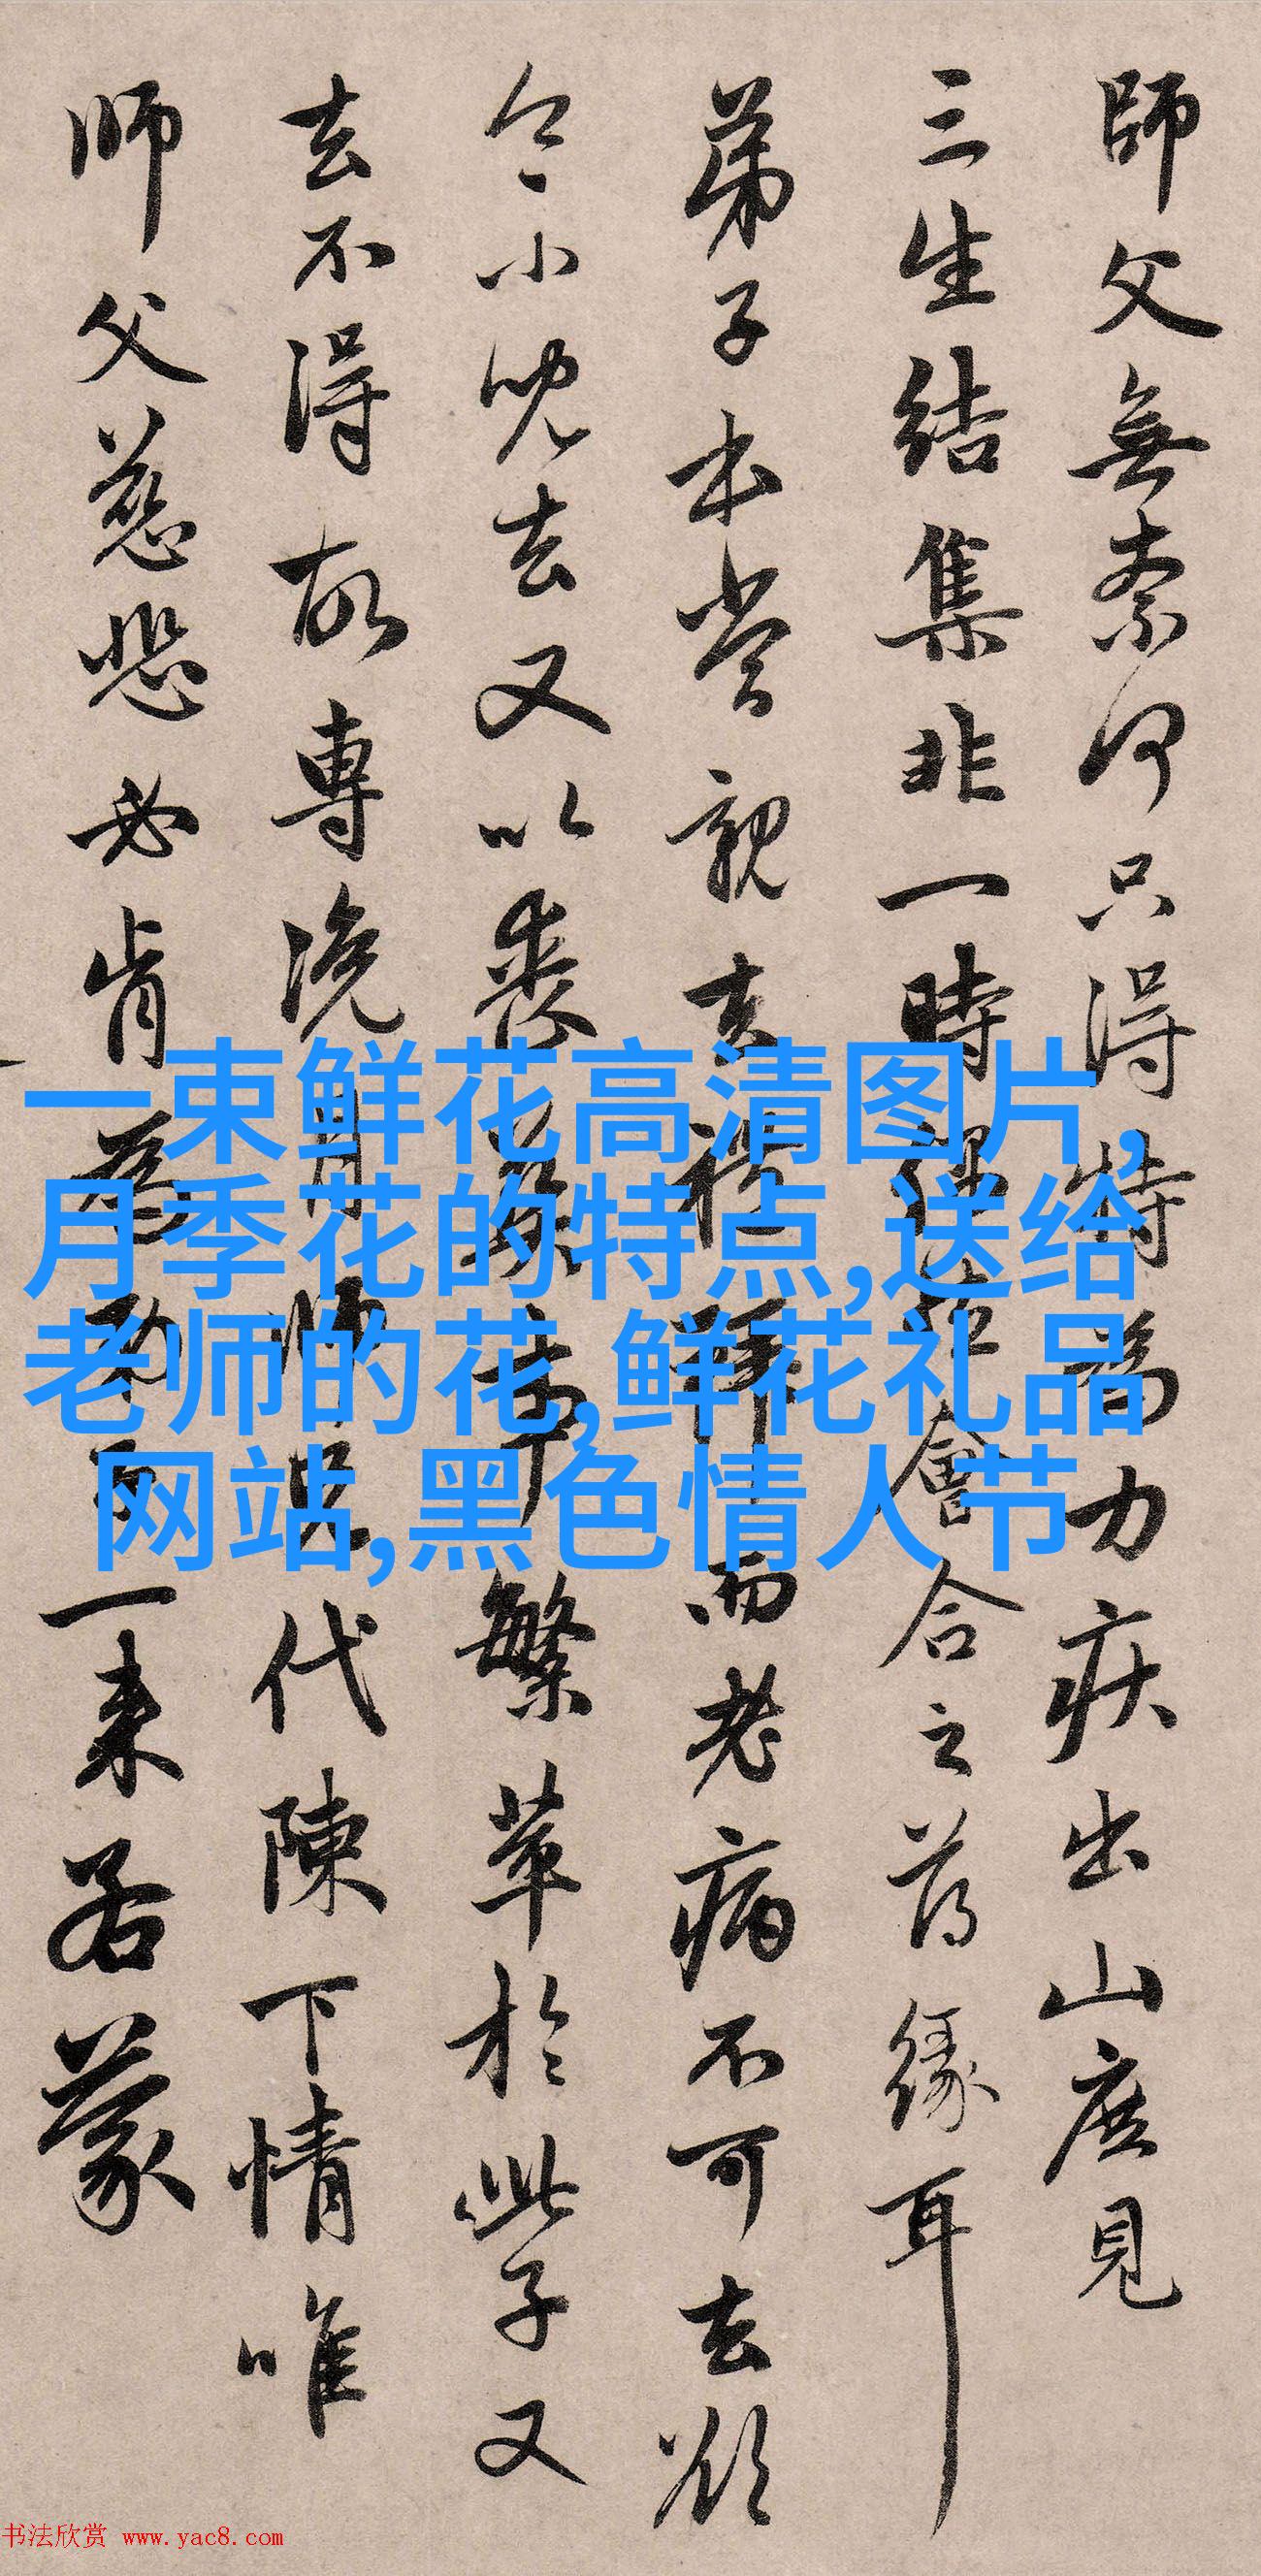 師父無奈何只得特為力疾出山庶見
三生結集非一時會合之薄緣耳
弟子本當親去禮拜而老病不可去欲
令小兒去又以喪事繁於此子又
去不得故專浼月師兄代陳下情唯
師父慈悲必肯為一來若蒙
一束鲜花高清图片,
月季花的特点,送给
老师的花,鲜花礼品
网站,黑色情人节
书法欣赏 www.yac8.com